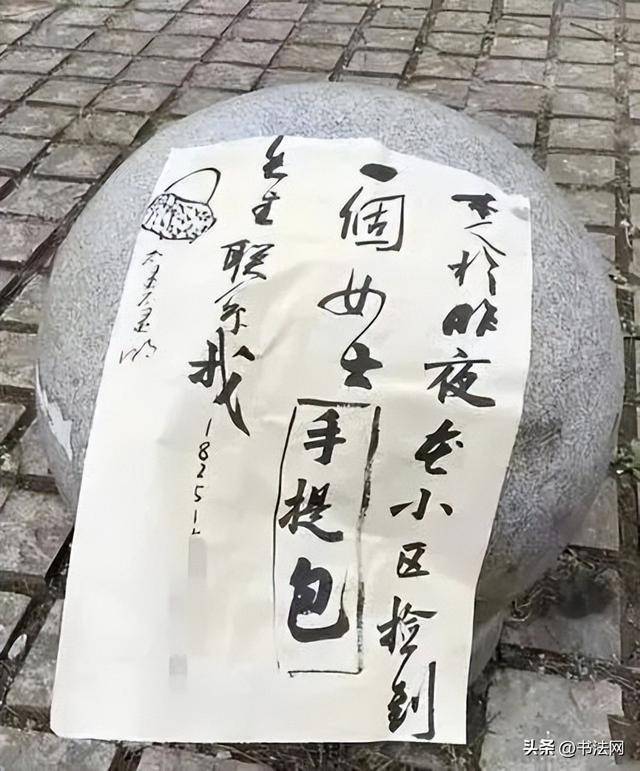 本人於昨夜在小区捡到
一個女士
手提包
失主联系我
18251
头条 @书法网